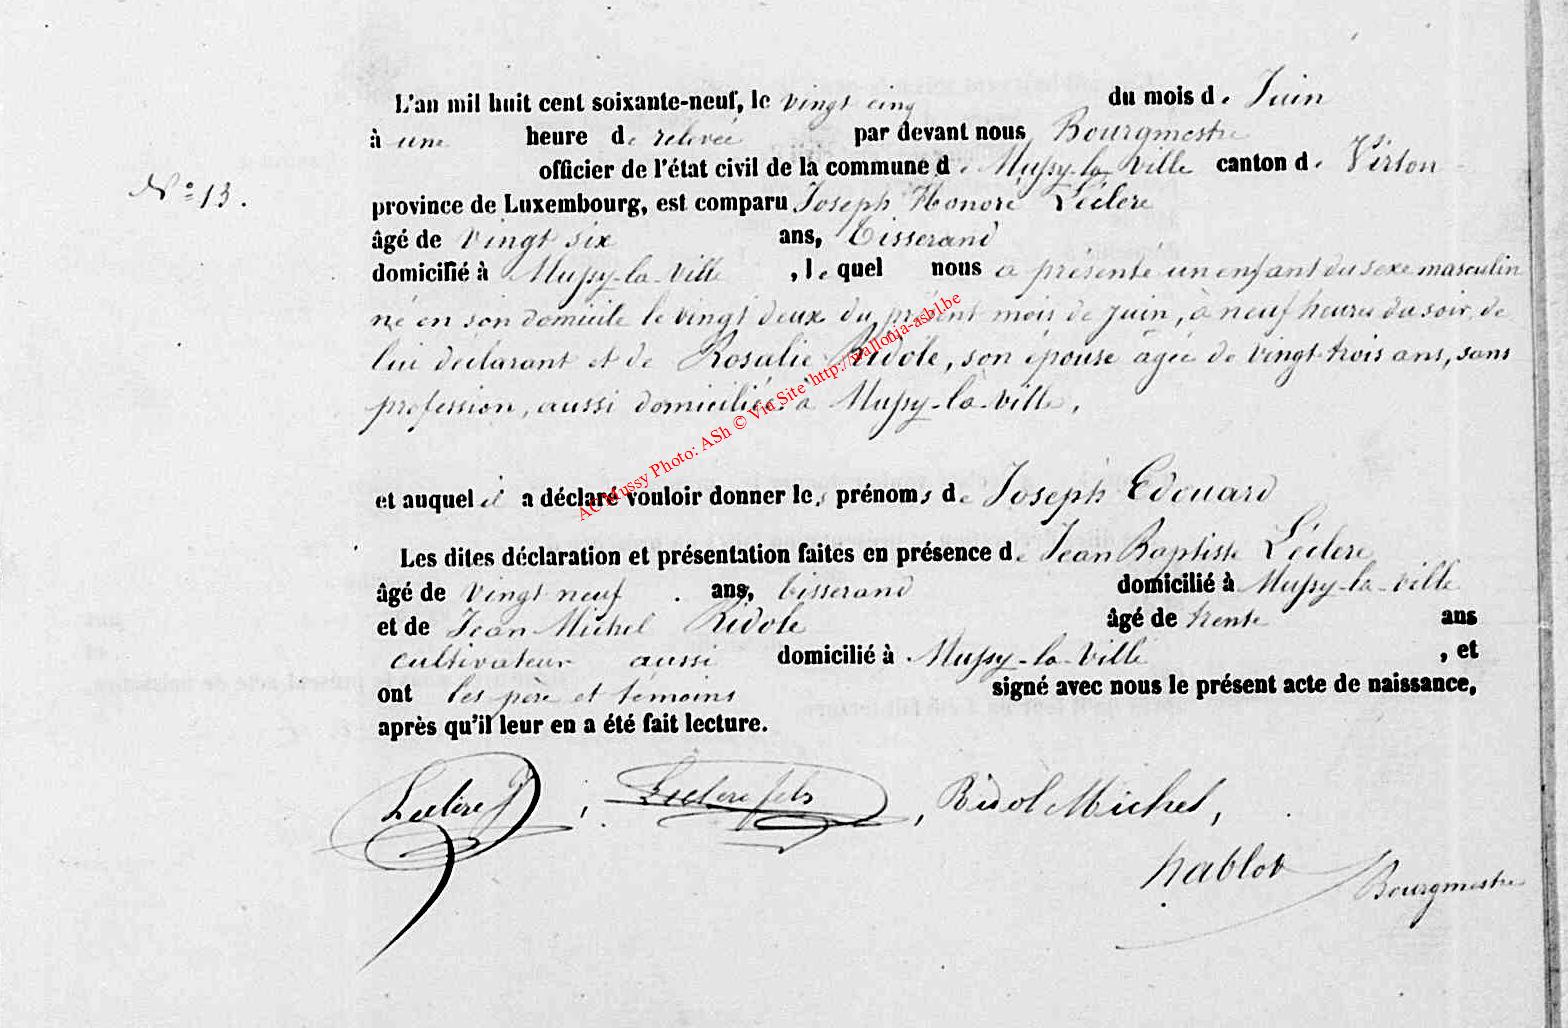 L'an mil huit cent soixante-neuf, le vingt cinq du mois de Juin
à une heure de relevée par devant nous Bourgmestre
officier de l'état civil de la commune de Mussy-la-Ville canton de Virton
N° 13.
province de Luxembourg, est comparu Joseph Honoré Léclere
âgé de vingt six ans, tisserand
domicilié à Mussy-la-Ville, lequel nous a présenté un enfant du sexe masculin
né en son domicile le vingt deux du présent mois de juin, à neuf heures du soir, de
lui déclarant et de Rosalie Ridole, son épouse âgée de vingt-trois ans, sans
profession, aussi domiciliée à Mussy-la-Ville.
et auquel il a déclaré vouloir donner les prénoms de Joseph Edouard
Les dites déclaration et présentation faites en présence de Jean Baptiste Léclere
âgé de vingt neuf ans, tisserand domicilié à Mussy-la-Ville
et de Jean Michel Ridole âgé de trente ans
cultivateur aussi domicilié à Mussy-la-Ville, et
ont les père et témoins signé avec nous le présent acte de naissance,
après qu'il leur en a été fait lecture.
Leclère J ; Leclere fils, Ridol Michel,
hablot Bourgmestre
AC Mussy Photo: ASh © Via Site http://wallonia-asbl.be